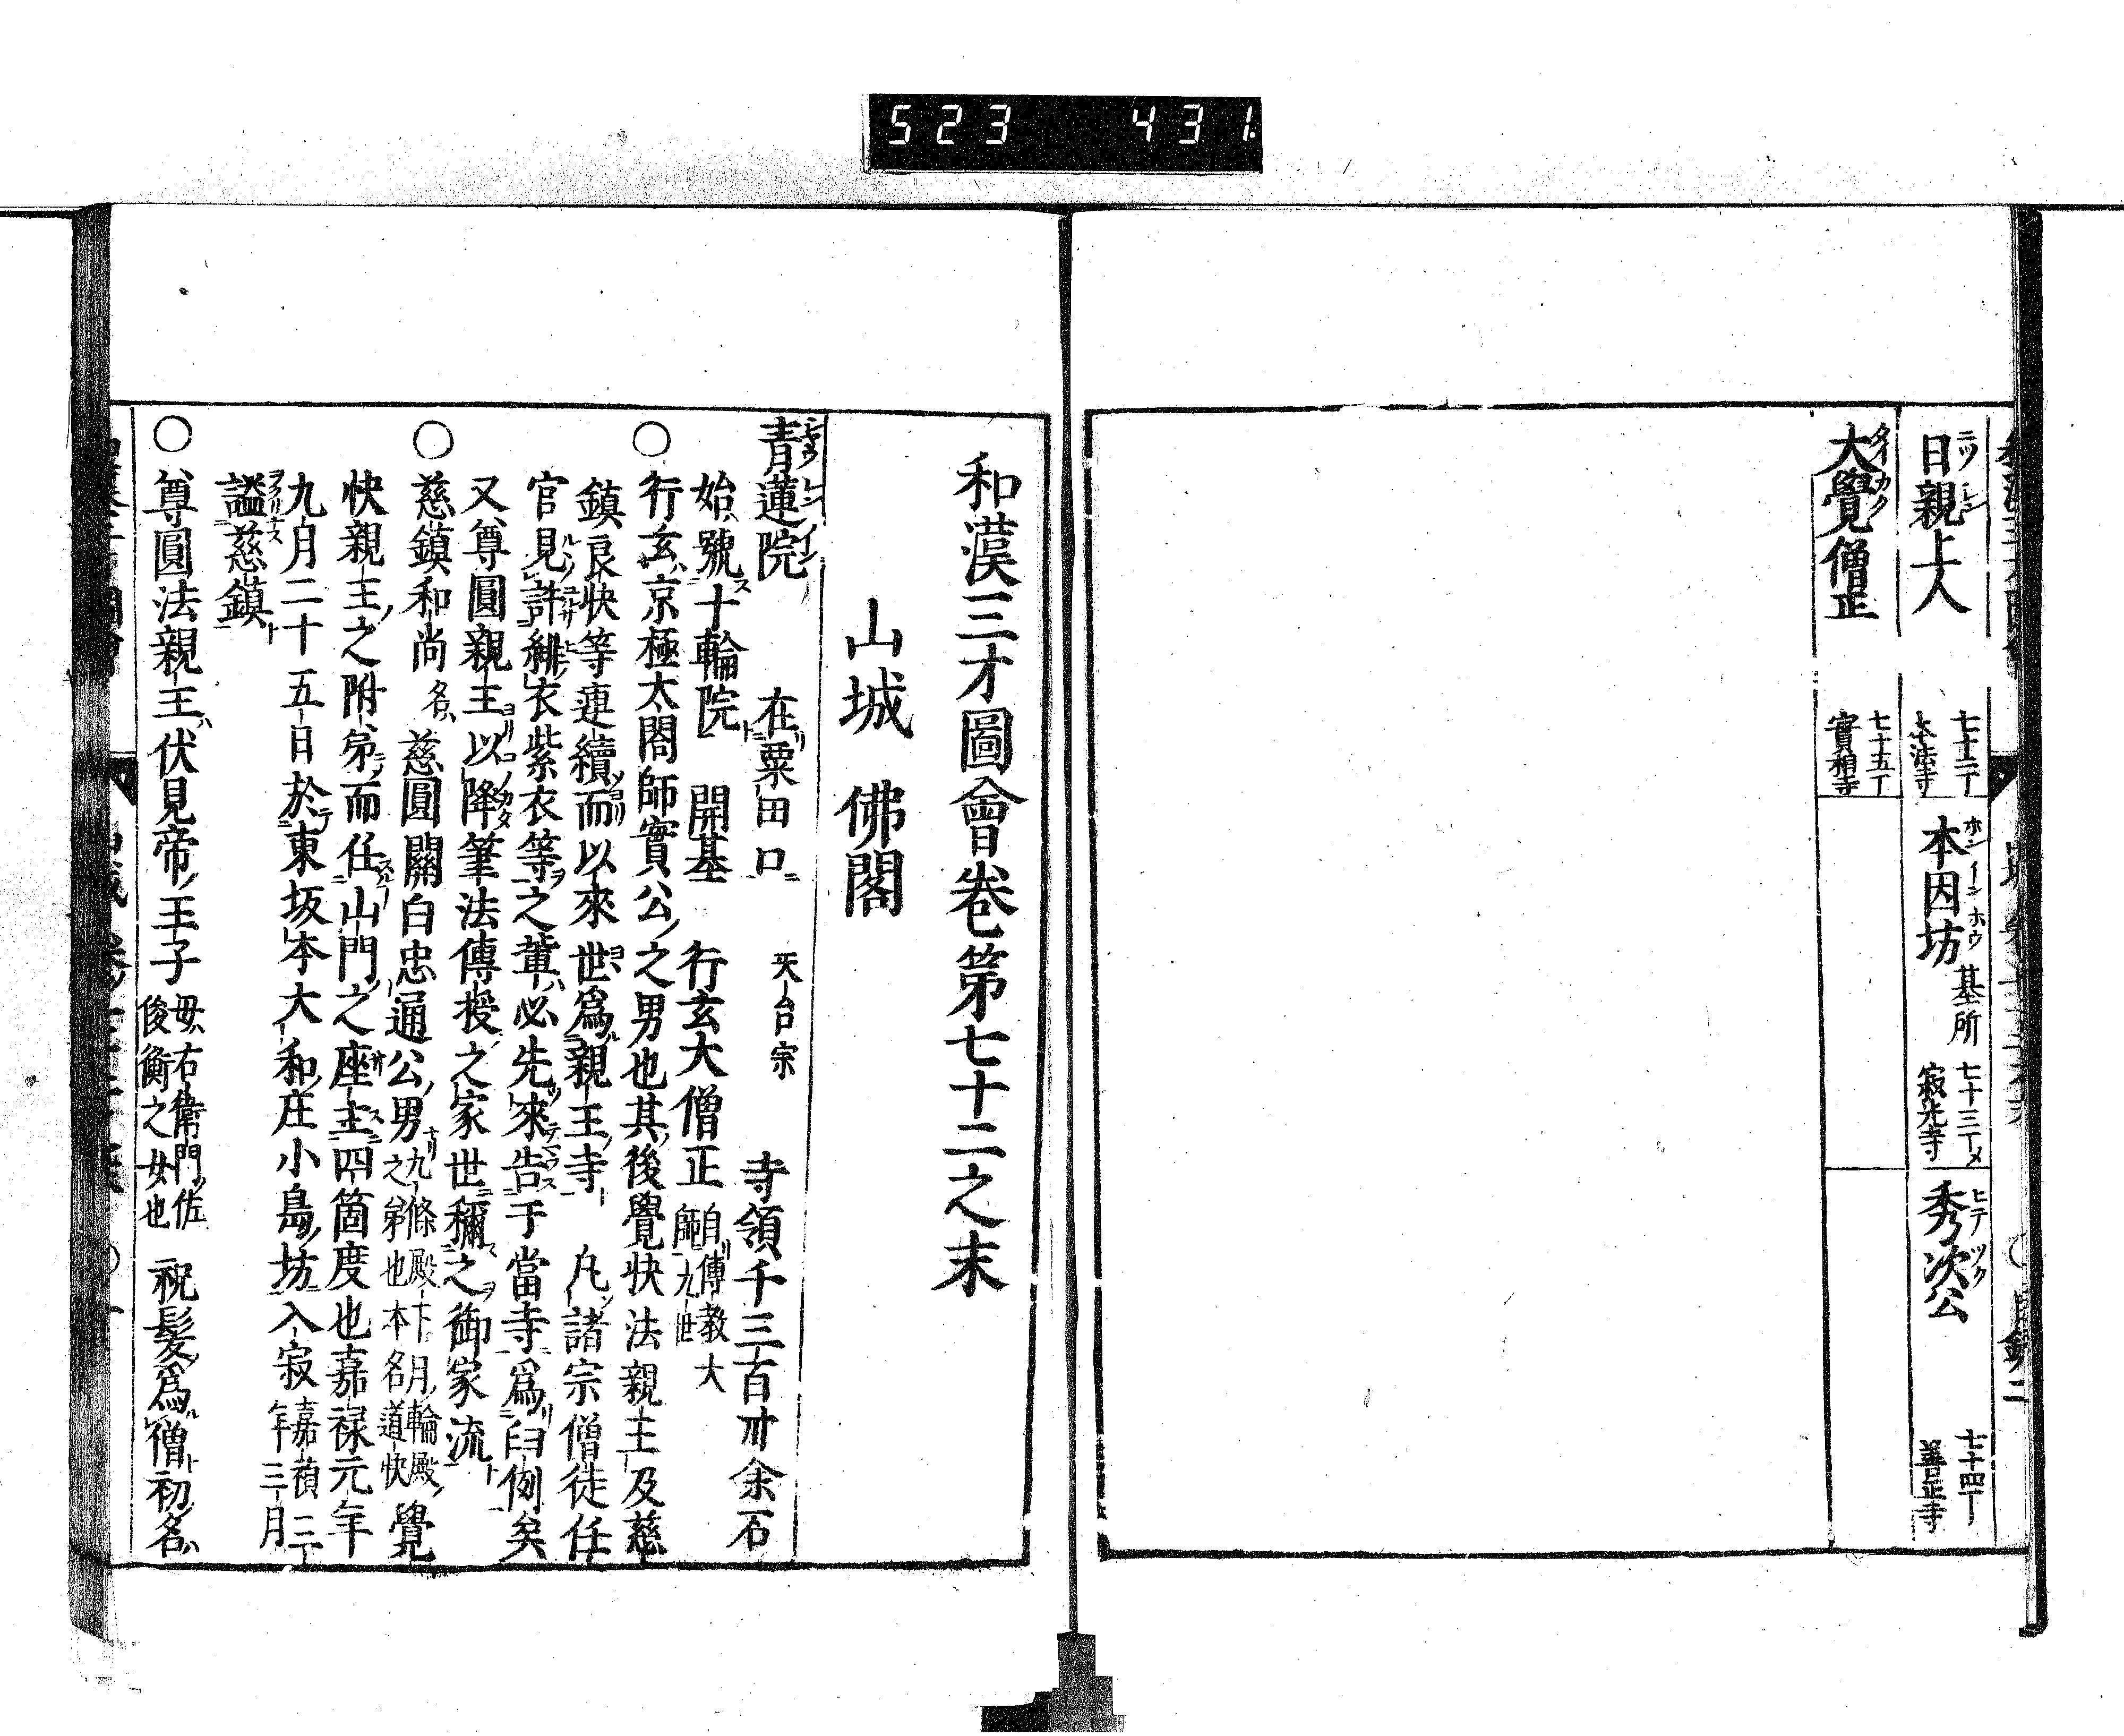 523 431
日親上人 七十二丁 本法寺
本因坊 基所 七十三丁メ 寂光寺
秀次公 七十四丁 善正寺
大覺僧正 七十五丁 實相寺
和漢三才圖會卷第七十二之末
山城 佛閣
青蓮院 在粟田口 天台宗 寺領千三百卅余石
始號十輪院 開基 行玄大僧正 自傳教大師九世
○行玄京極太閤師實公之男也其後覺快法親王及慈
鎮良快等連續而以來世爲親王寺 凡諸宗僧徒任
官見許緋衣紫衣等之輩必先來告于當寺爲曰例矣
又尊圓親王以降筆法傳授之家世稱之御家流
○慈鎮和尚 名慈圓關白忠通公男 九條殿下月輪殿之弟也本名道快 覺
快親王之附弟而任山門之座主四箇度也嘉禄元年
九月二十五日於東坂本大和庄小島坊入寂 嘉禎二丁年三月
謚慈鎮
○尊圓法親王伏見帝王子 母右衛門佐俊衡之女也 祝髮爲僧初名